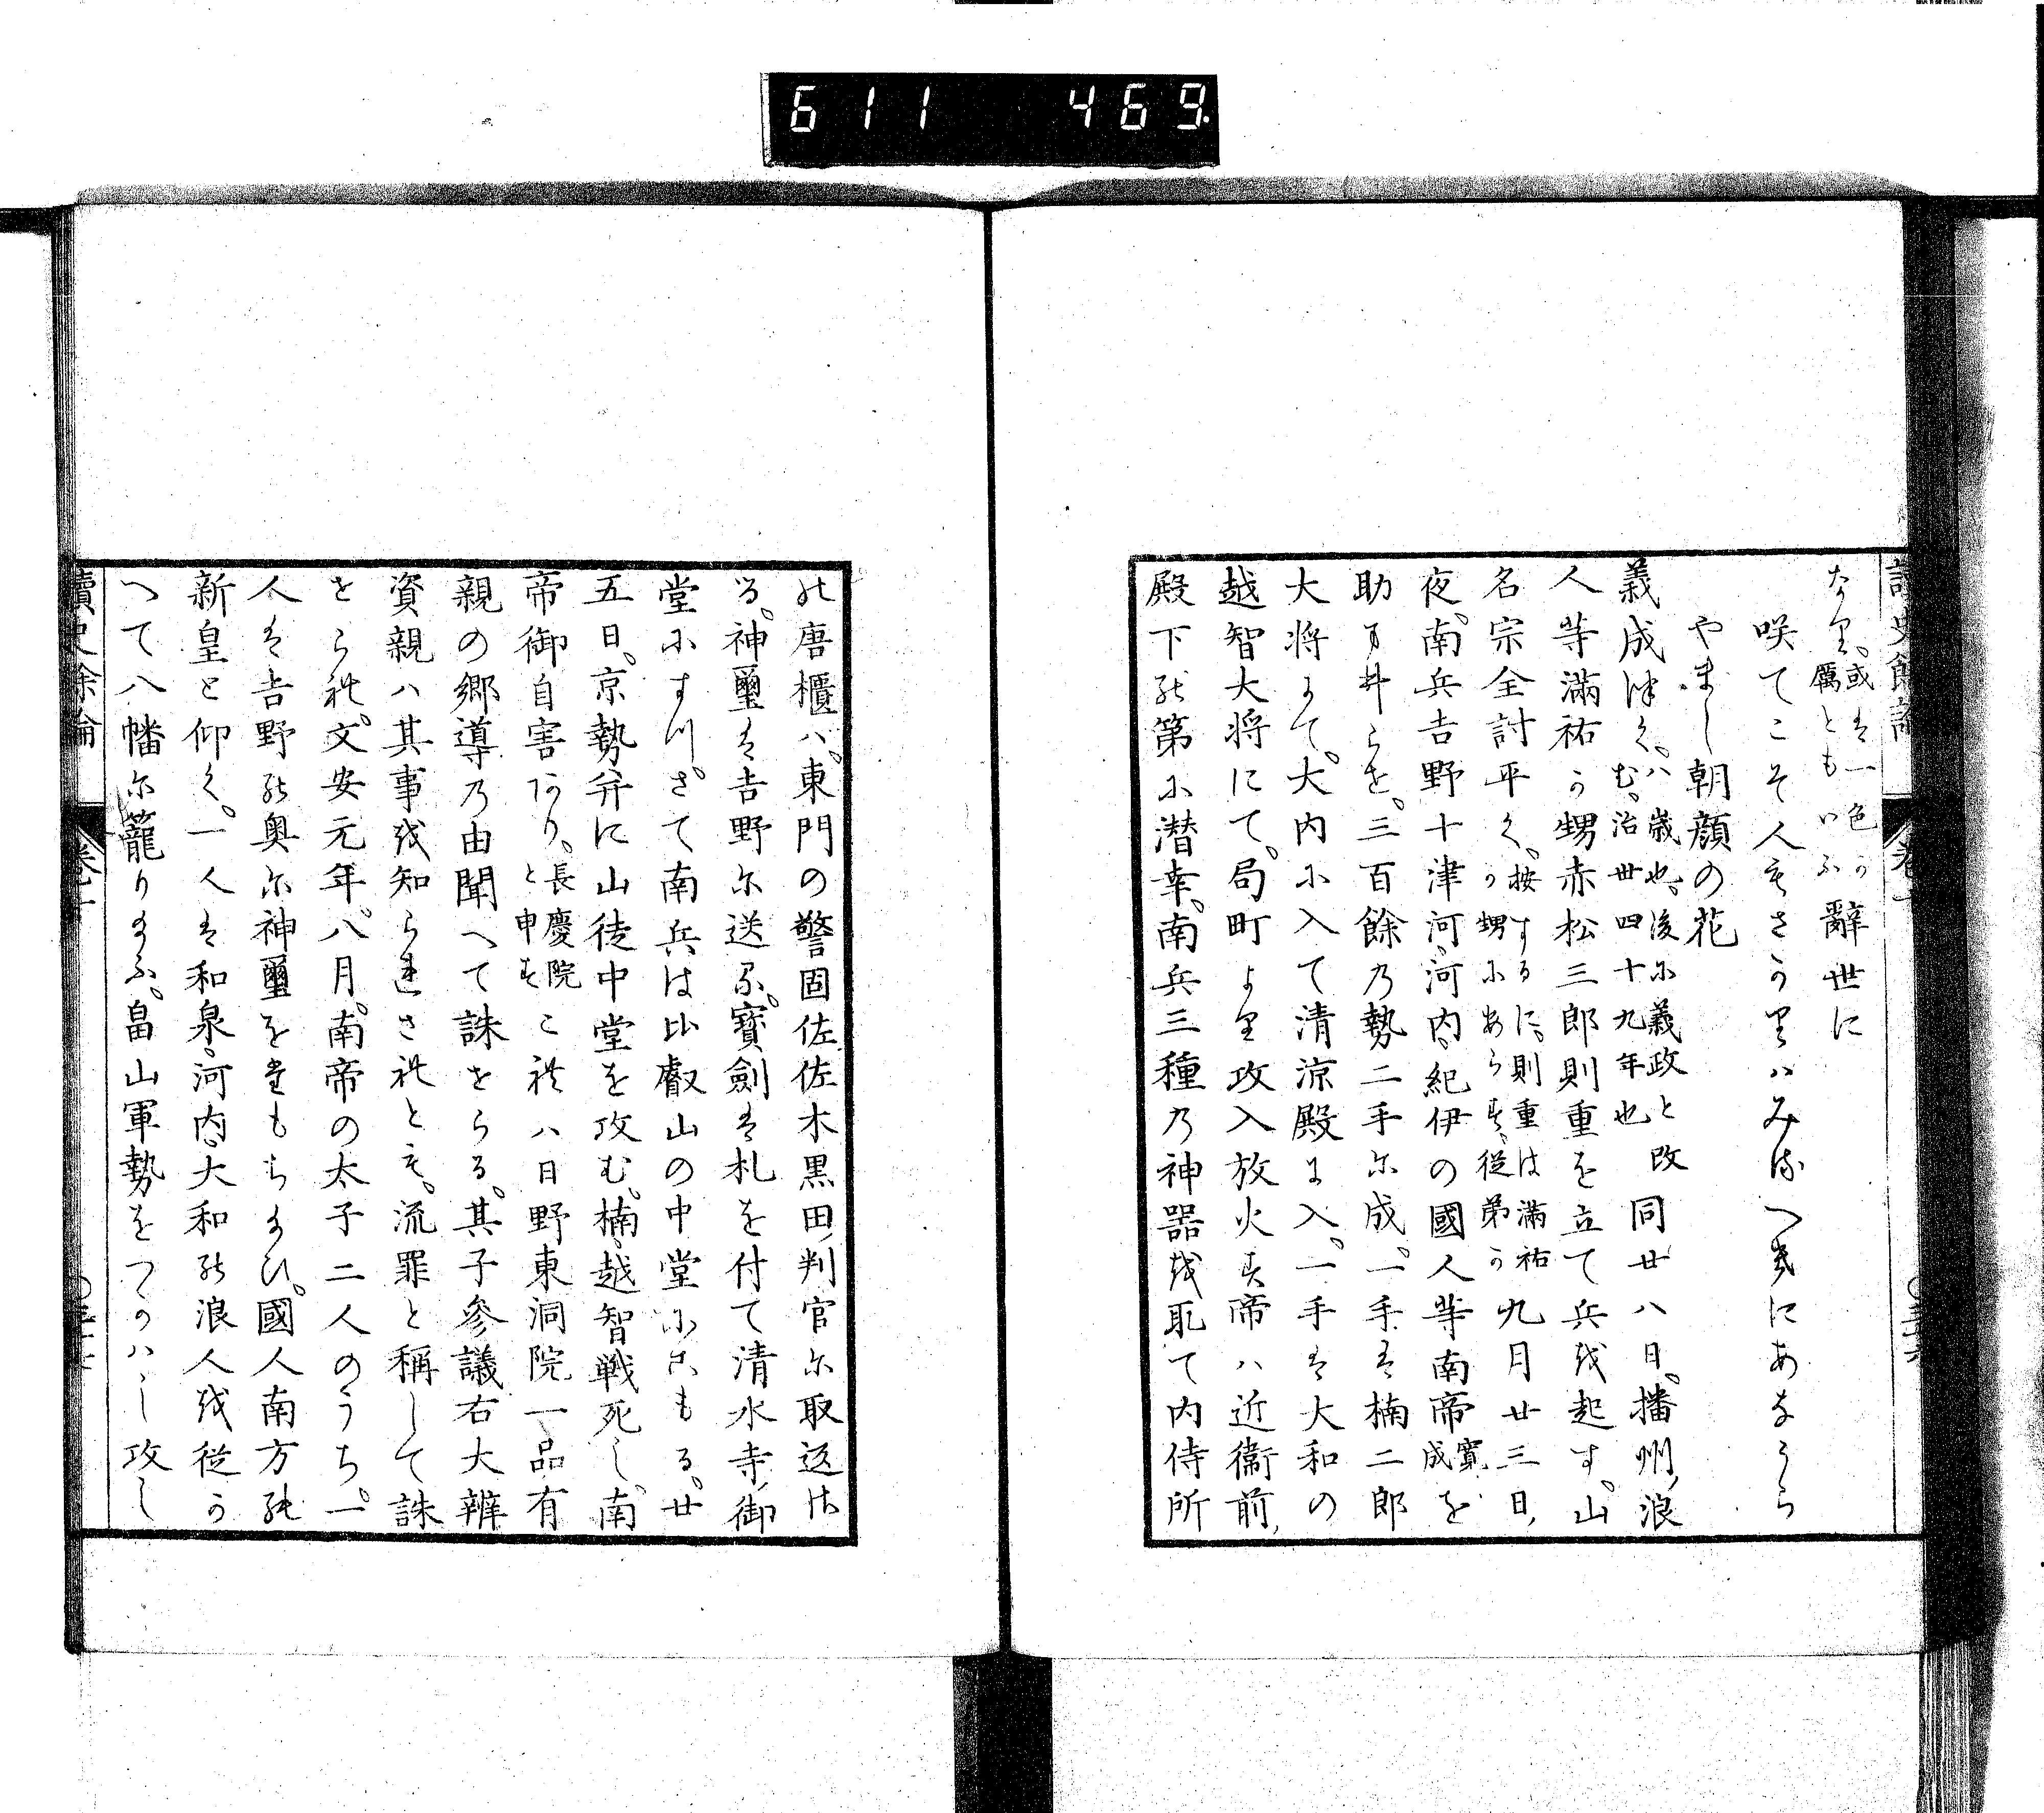 611 469
讀史餘論 卷十一
なり。或は一色か屬ともいふ辭世に
咲てこそ人もさかりハみるへきにあなうら
やまし朝顔の花
義成継く。八歳也、後に義政と改む。治世四十九年也同廿八日。播州浪
人等滿祐の甥赤松三郎則重を立て兵を起す。山
名宗全討平く、按するに、則重は滿祐の甥にあらす、從弟か九月廿三日、
夜。南兵吉野十津河、河内、紀伊の國人等南帝寛成を
助け井らを。三百餘の勢二手に成。一手は楠二郎
大将にて。大内に入て清涼殿に入。一手は大和の
越智大将にて。局町より攻入放火す帝ハ近衞前
殿下の第に潛幸。南兵三種の神器を取て内侍所
の唐櫃ハ。東門の警固佐佐木黒田判官に取返さ
る。神璽は吉野に送る。寳劍は札を付て清水寺御
堂にすつ。さて南兵は比叡山の中堂にこもる。廿
五日。京勢并に山徒中堂を攻む。楠、越智戰死し、南
帝御自害あり。長慶院と申すこれハ日野東洞院一品有
親の郷導の由聞へて誅せらる。其子參議右大辨
資親ハ其事を知られされとも。流罪と稱して誅
せられ。文安元年。八月。南帝の太子二人のうち。一
人は吉野の奥に神璽をたもちまひ。國人南方の
新皇と仰く。一人は和泉、河内、大和の浪人を從か
へて八幡に籠りまふ。畠山軍勢をつかハし攻し
讀史餘論 卷十一